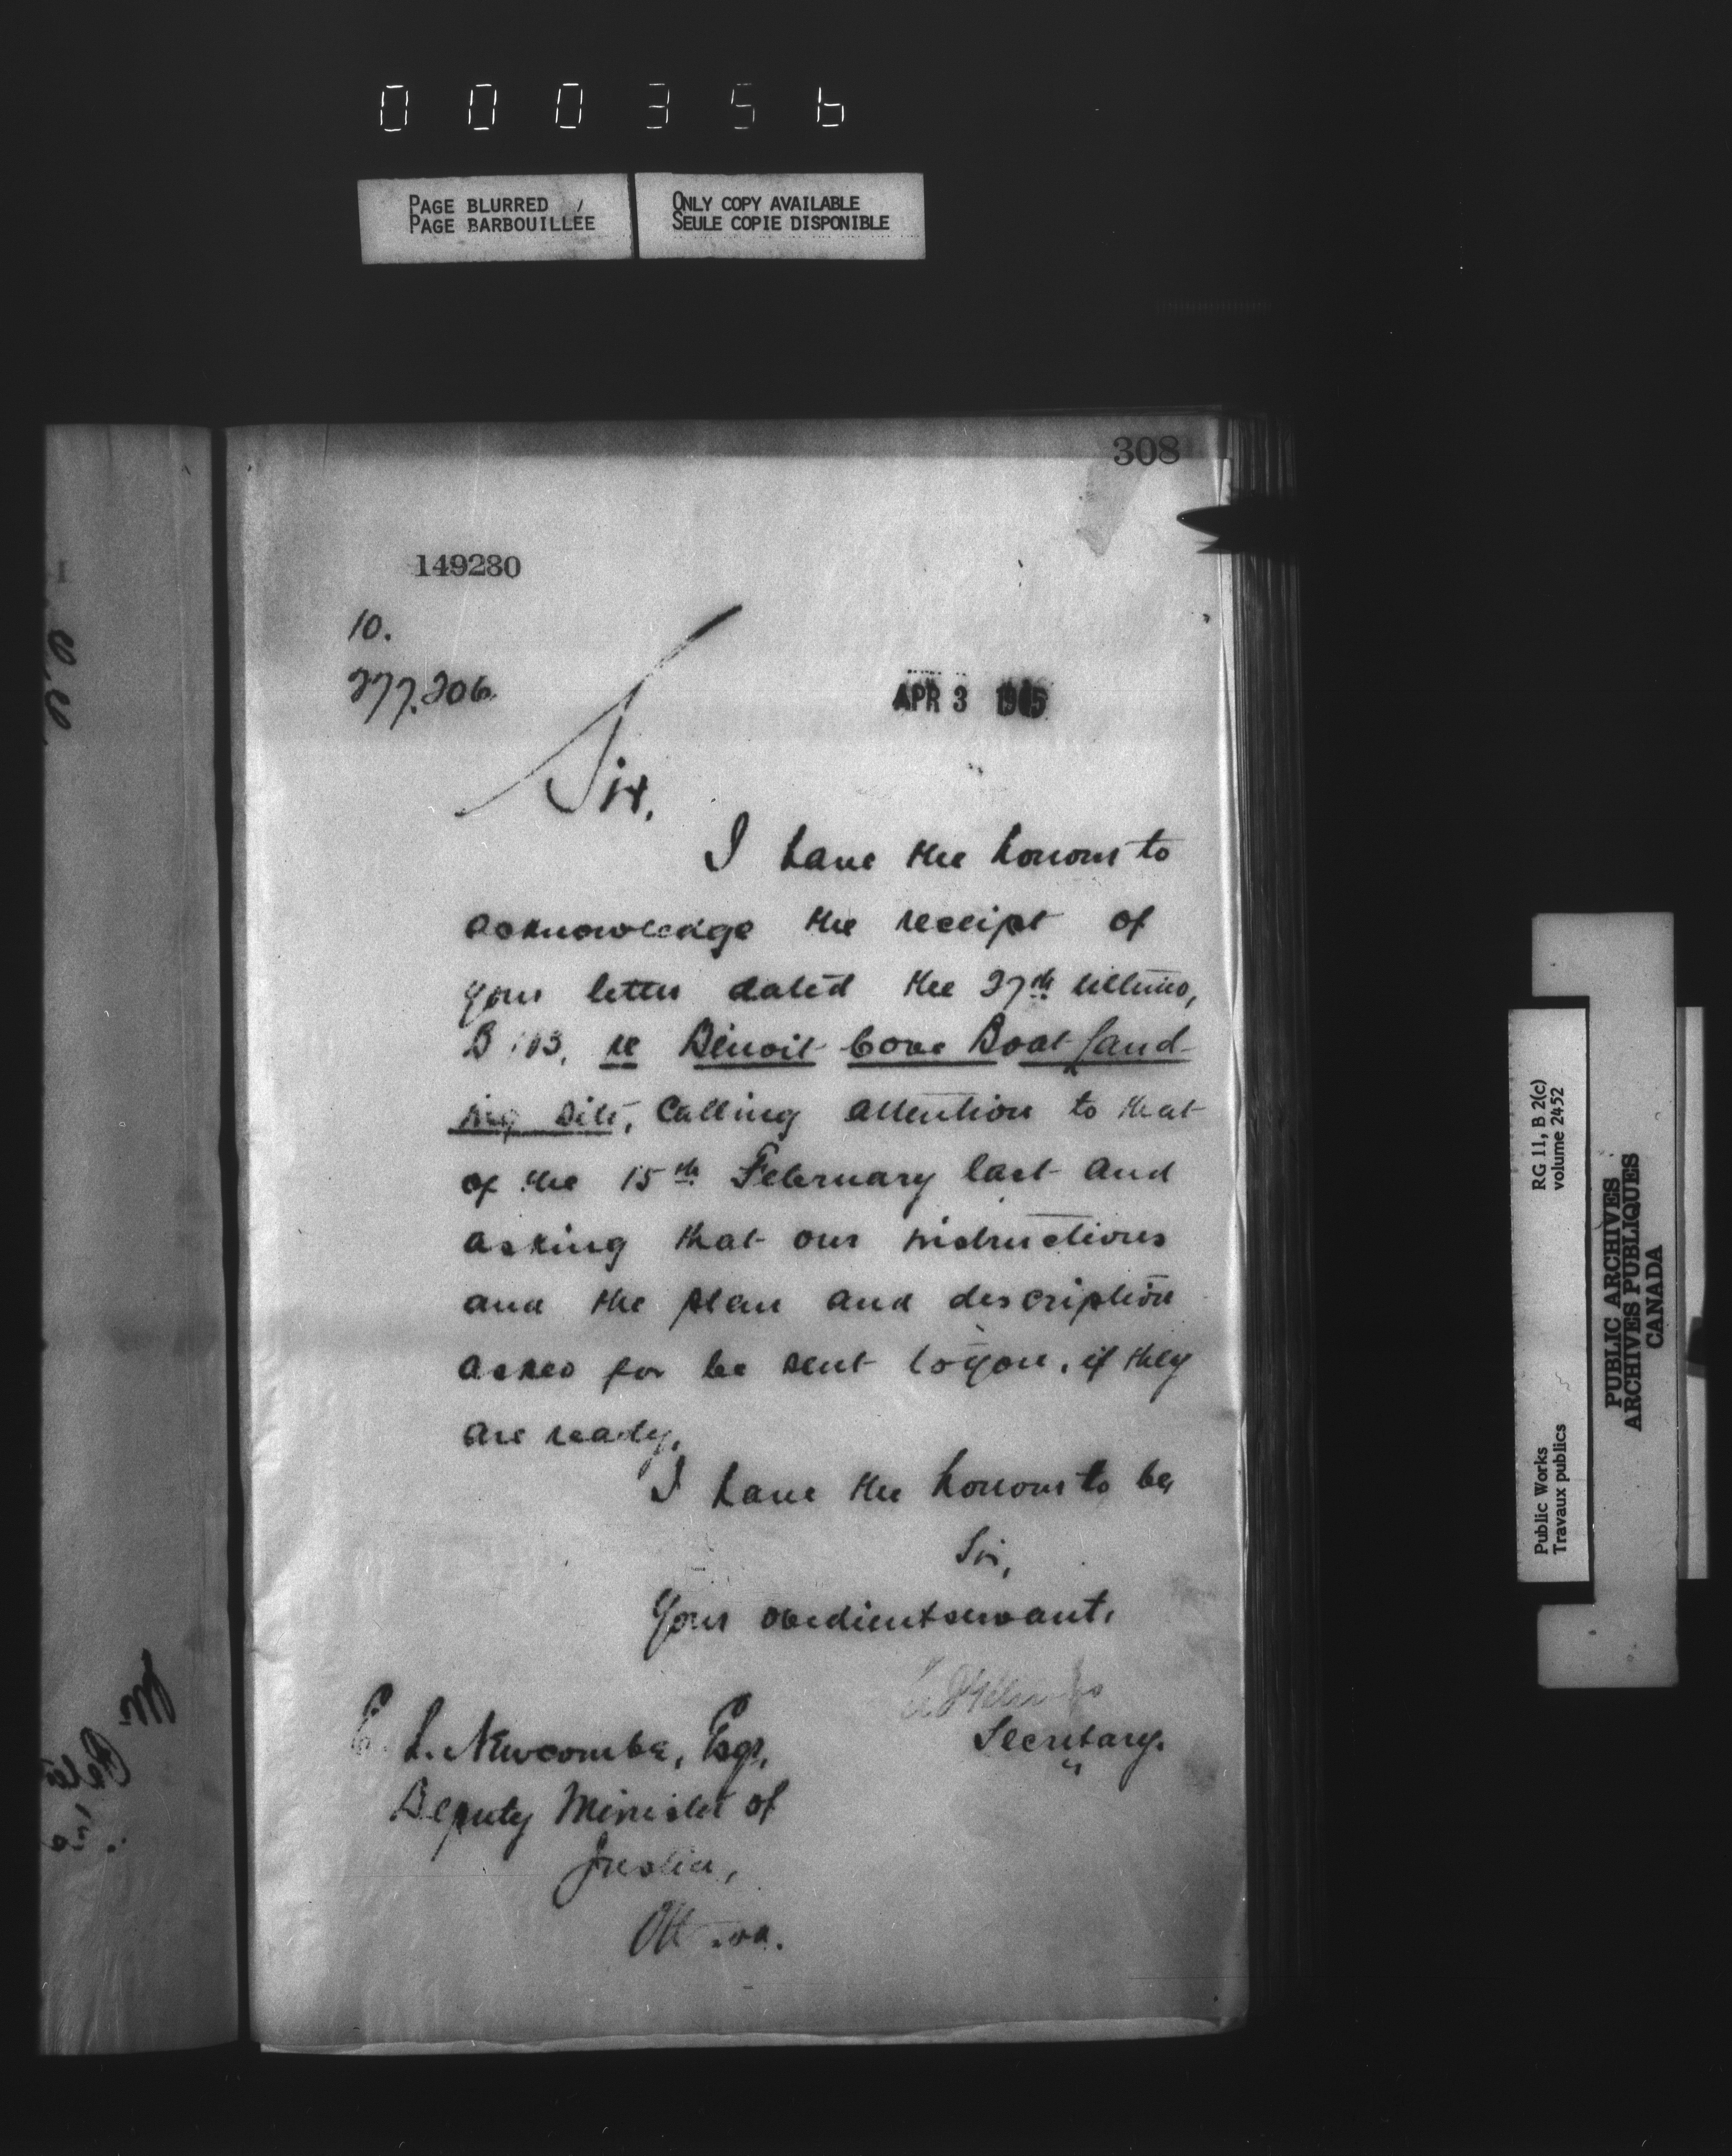 000356
PAGE BLURRED
PAGE BARBOUILLEE
ONLY COPY AVAILABLE
SEULE COPIE DISPONIBLE
308
149280
10.
277.206.
APR 3 1905
Sir,
I have the honour to
acknowledge the receipt of
your letter dated the 27th ultimo,
B 103, re Benoit Cove Boat Land-
ing site, calling attention to that
of the 15th February last and
asking that our instructions
and the plan and description
asked for be sent to you, if they
are ready.
I have the honour to be,
Sir,
Your obedient servant,
Secretary.
E. L. Newcombe, Esq.,
Deputy Minister of
Justice,
Ottawa.
RG 11, B 2(c)
volume 2452
Public Works
Travaux publics
PUBLIC ARCHIVES
ARCHIVES PUBLIQUES
CANADA